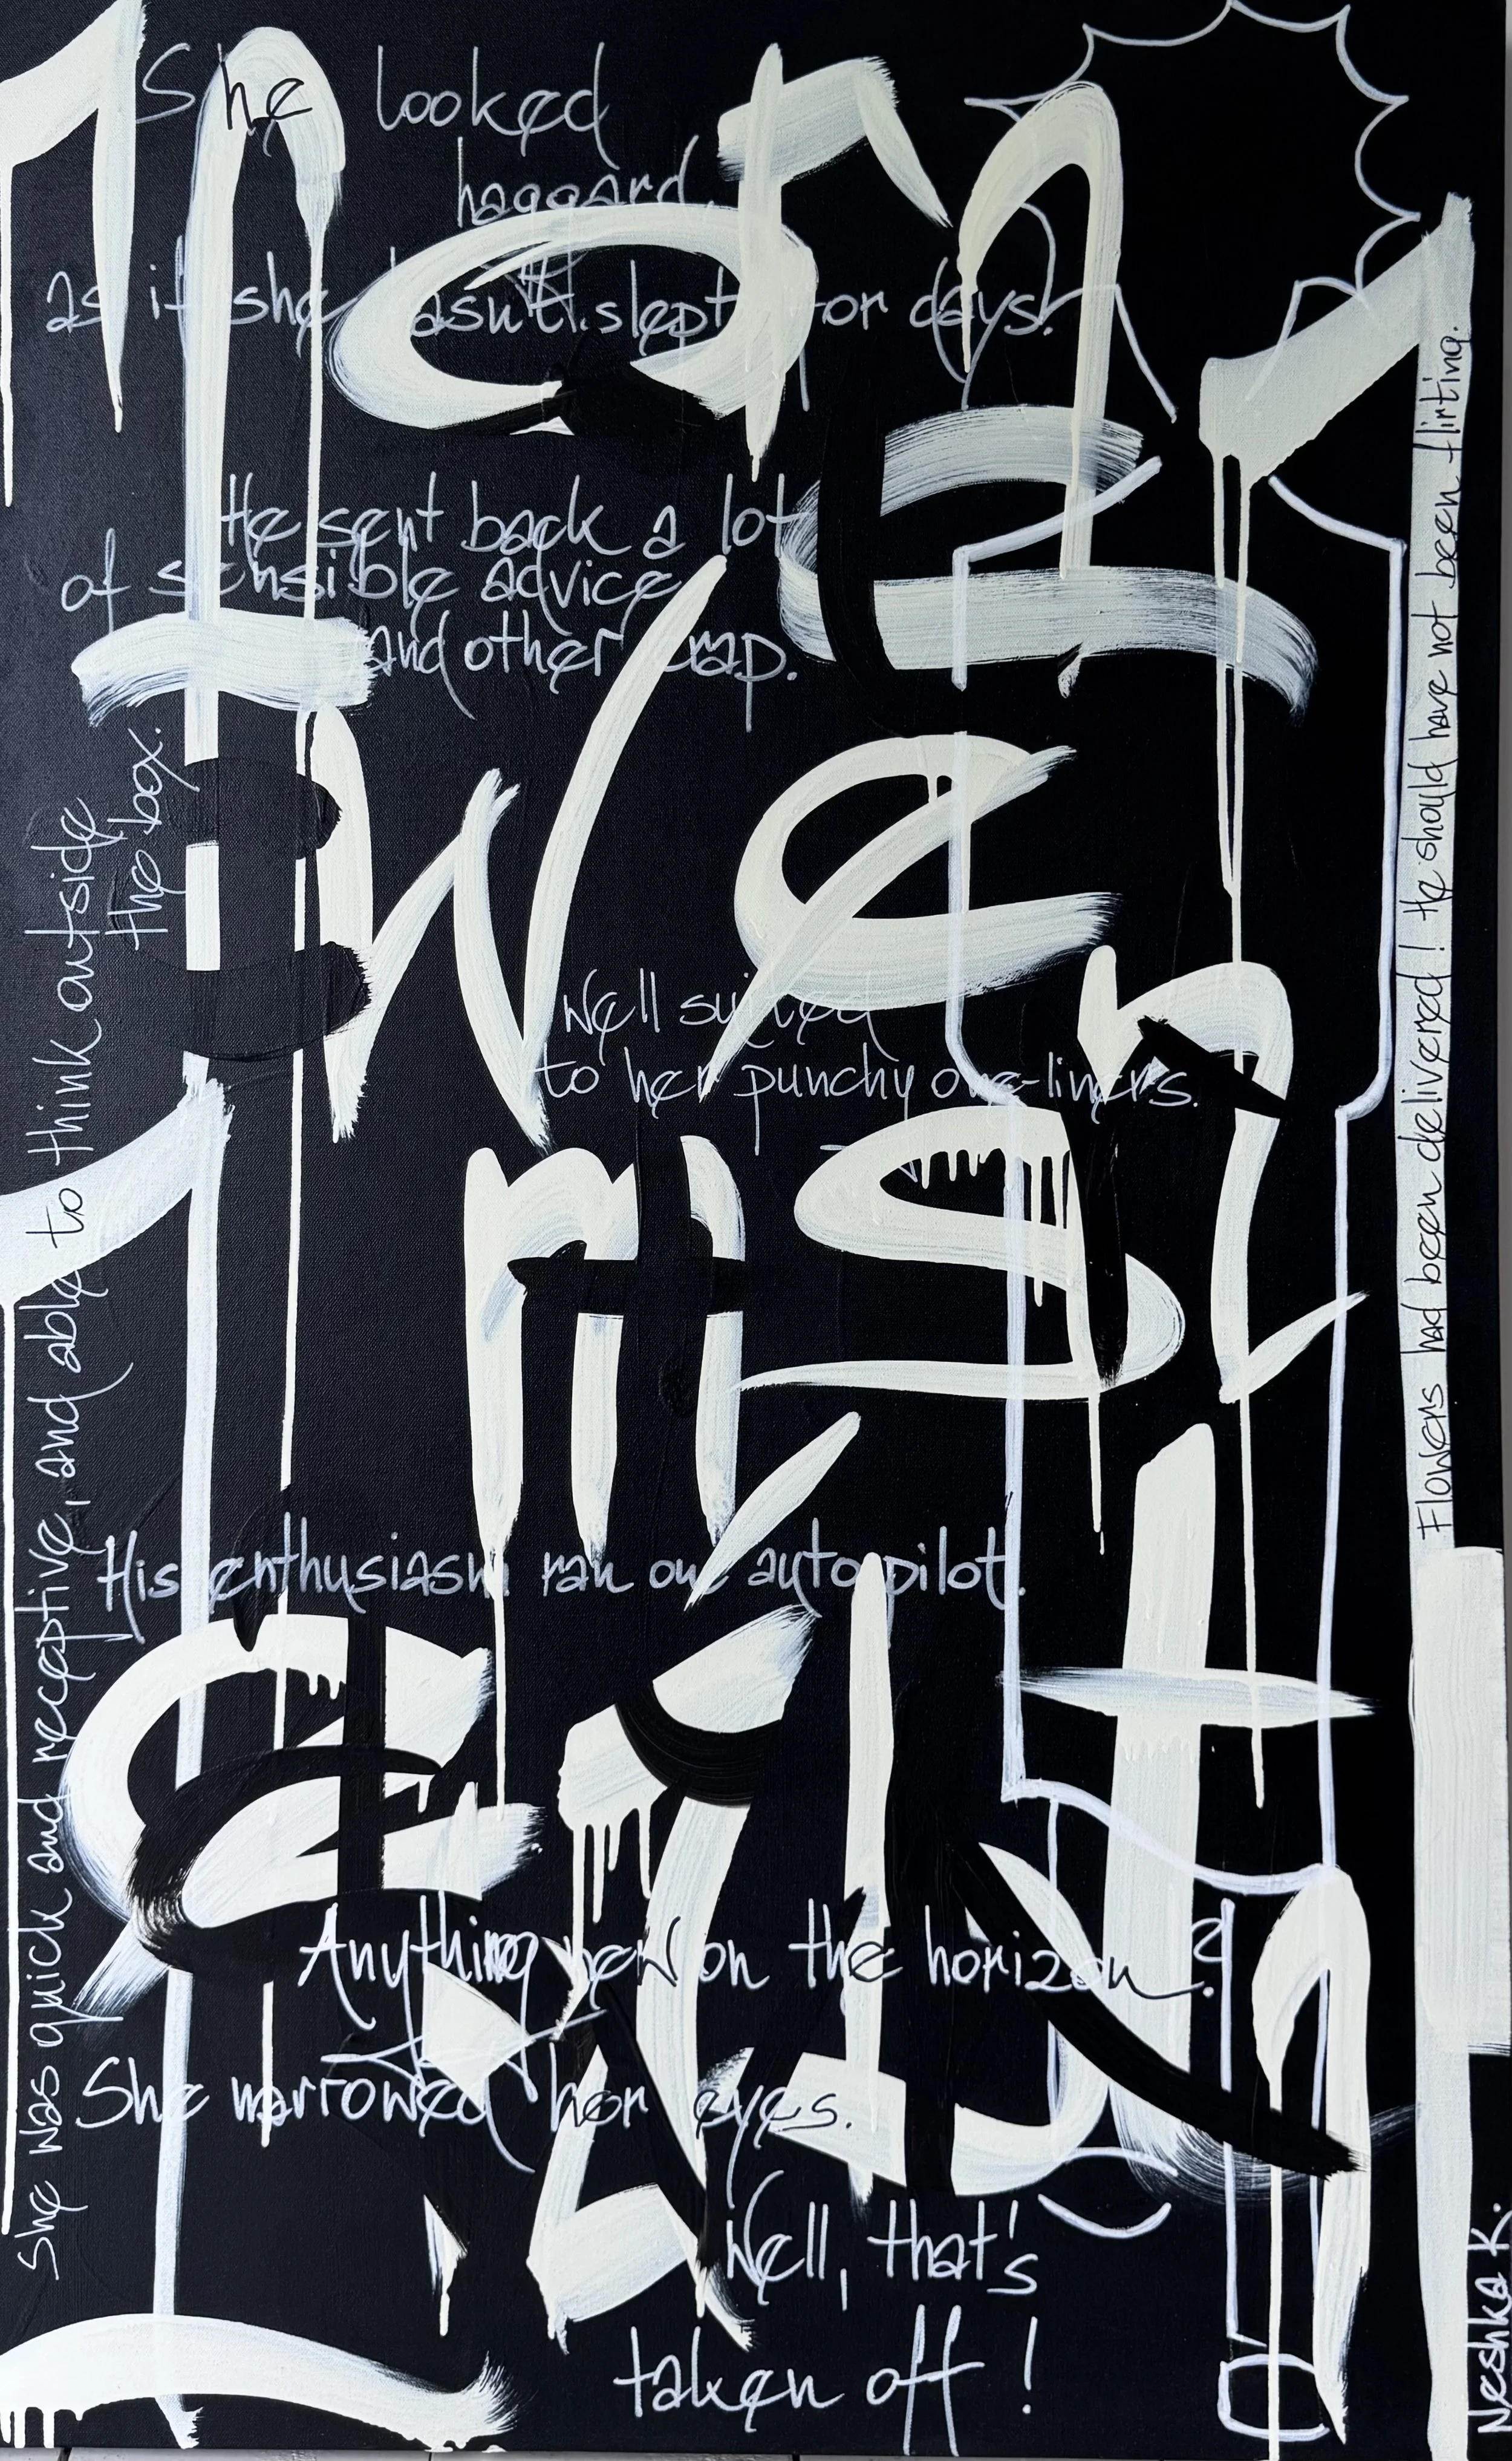 She looked
haggard,
as if she hasn't slept for days!
He sent back a lot
of sensible advice
and other crap.
She was quick and receptive, and able to think outside
the box.
Flowers had been delivered! He should have not been flirting.
Well suited
to her punchy one-liners.
His enthusiasm ran on autopilot.
Anything new on the horizon?
She narrowed her eyes.
Well, that's
taken off!
Neshka K.